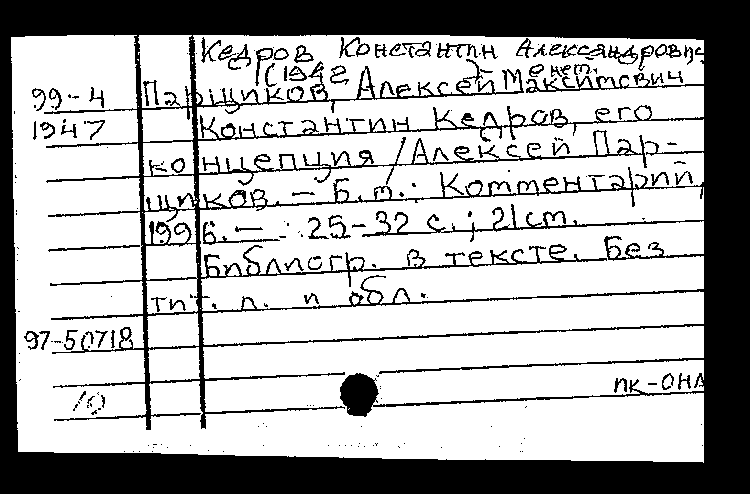 Кедров Константин Александрович
(1942 - ) о нем.
99-4 Парщиков, Алексей Максимович
1947 Константин Кедров, его
концепция / Алексей Пар-
щиков. — Б.м.: Комментарий,
1996. — 25-32 с.; 21 см.
Библиогр. в тексте. Без
тит. л. и обл.
97-50718
10 ПК-ОНЛ